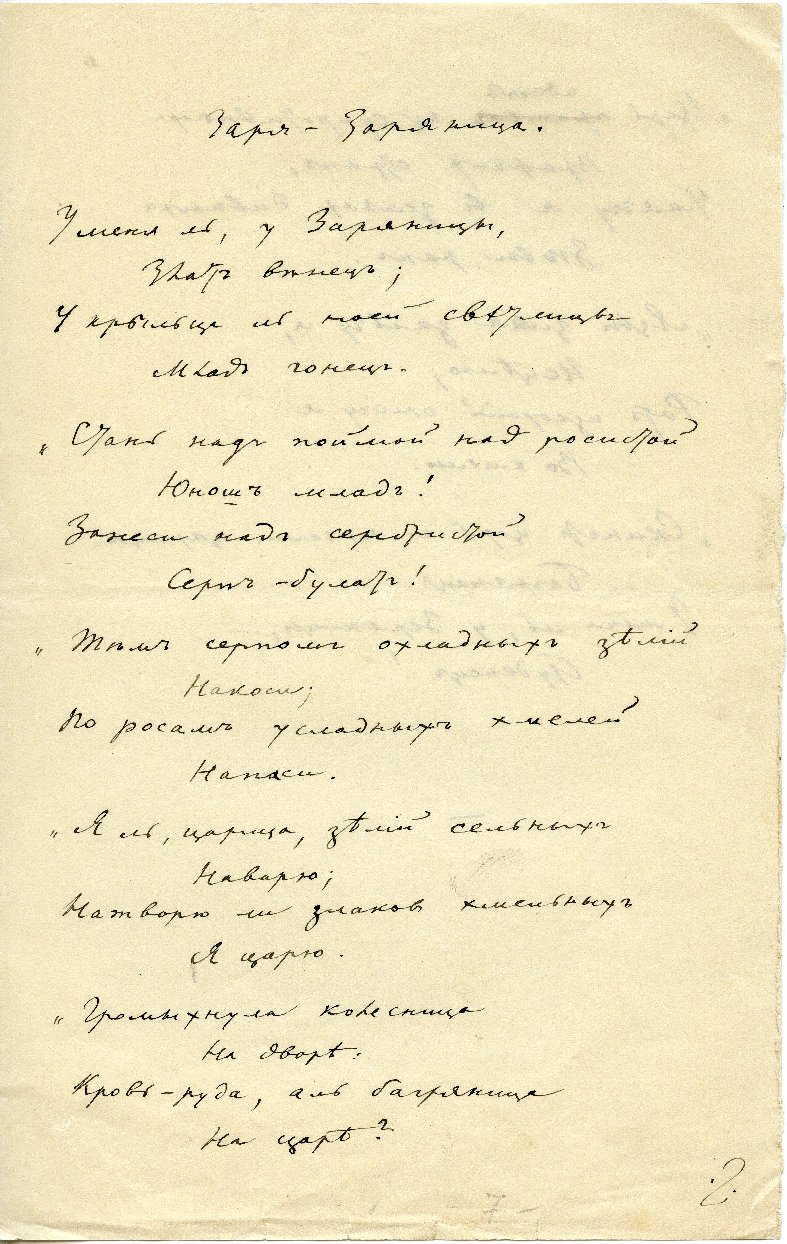 Заря-Заряница.
У меня ль, у Заряницы,
Златъ вѣнецъ;
У крыльца ль моей свѣтлицы
Младъ гонецъ.
„ Стань надъ поймой над росистой
Юношъ младъ!
Занеси надъ серебристой
Серпъ-булатъ!
„ Тѣмъ серпомъ охладныхъ зѣлій
Накоси;
По росамъ усладныхъ хмелей
Напаси.
„ Я ль, царица, зѣлій сельныхъ
Наварю;
Натворю ли злаков хмельныхъ
Я царю.
„ Громыхнула колесница
На дворѣ.
Кровь-руда, аль багряница
На царѣ?
2.
- 7 -